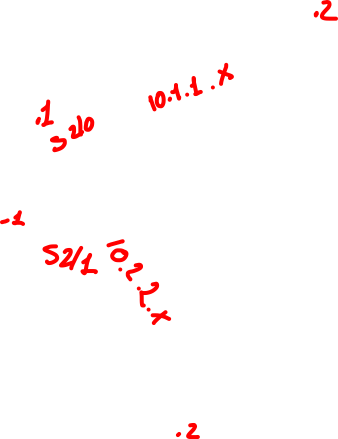 .2
10.1.1.x
.1
S 2/0
-1
S2/1
10.2.2.x
.2